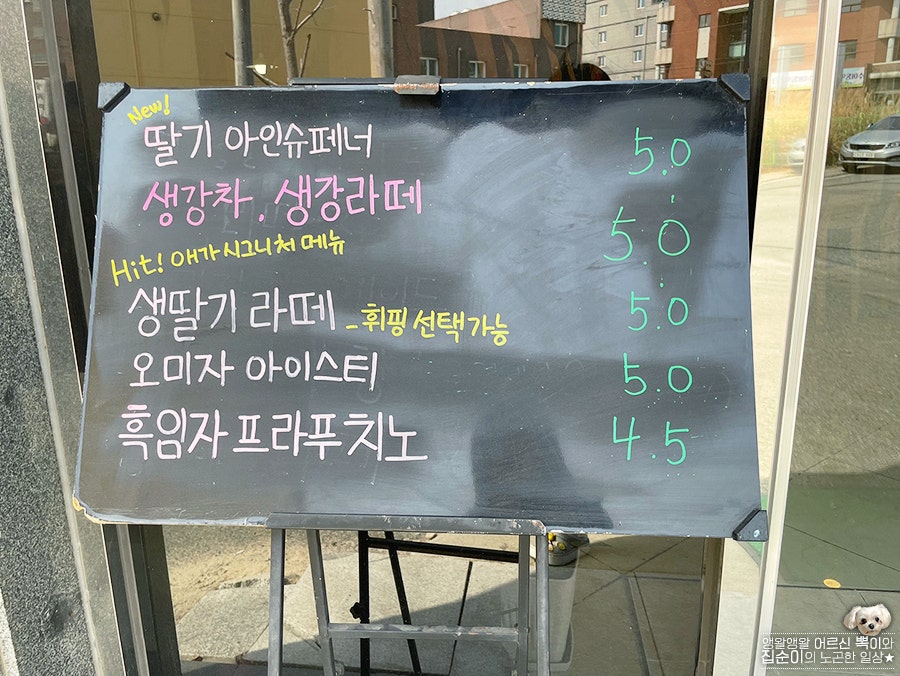 New!
딸기 아인슈페너 5.0
생강차. 생강라떼 5.0
Hit! 애가시그니처 메뉴
생딸기 라떼 - 휘핑 선택가능 5.0
오미자 아이스티 5.0
흑임자 프라푸치노 4.5
앵왈앵왈 어르신 뽁이와
집순이의 노곤한 일상★